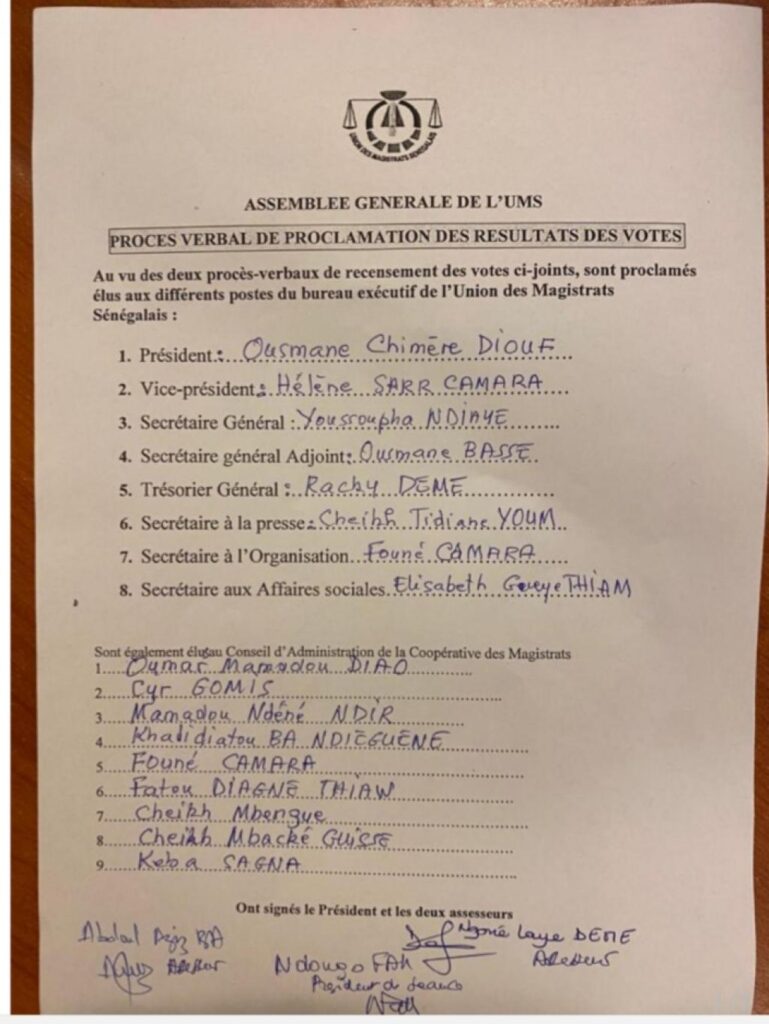 UNION DES MAGISTRATS SENEGALAIS
ASSEMBLEE GENERALE DE L'UMS
PROCES VERBAL DE PROCLAMATION DES RESULTATS DES VOTES
Au vu des deux procès-verbaux de recensement des votes ci-joints, sont proclamés
élus aux différents postes du bureau exécutif de l'Union des Magistrats
Sénégalais :
1. Président : Ousmane Chimère DIOUF
2. Vice-président : Hélène SARR CAMARA
3. Secrétaire Général : Youssoupha NDIAYE
4. Secrétaire général Adjoint : Ousmane BASSE
5. Trésorier Général : Racky DEME
6. Secrétaire à la presse : Cheikh Tidiane YOUM
7. Secrétaire à l'Organisation Founé CAMARA
8. Secrétaire aux Affaires sociales Elisabeth Gueye THIAM
Sont également élus au Conseil d'Administration de la Coopérative des Magistrats
1 Oumar Mamadou DIAO
2 Cyr GOMIS
3 Mamadou Ndéné NDIR
4 Khalidiatou BA NDIEGUENE
5 Founé CAMARA
6 Fatou DIAGNE THIAW
7 Cheikh Mbengue
8 Cheikh Mbacké GUISSE
9 Keba SAGNA
Ont signés le Président et les deux assesseurs
Abdoul Aziz BA
Laye DEME
Ndongo FALL
Président de séance